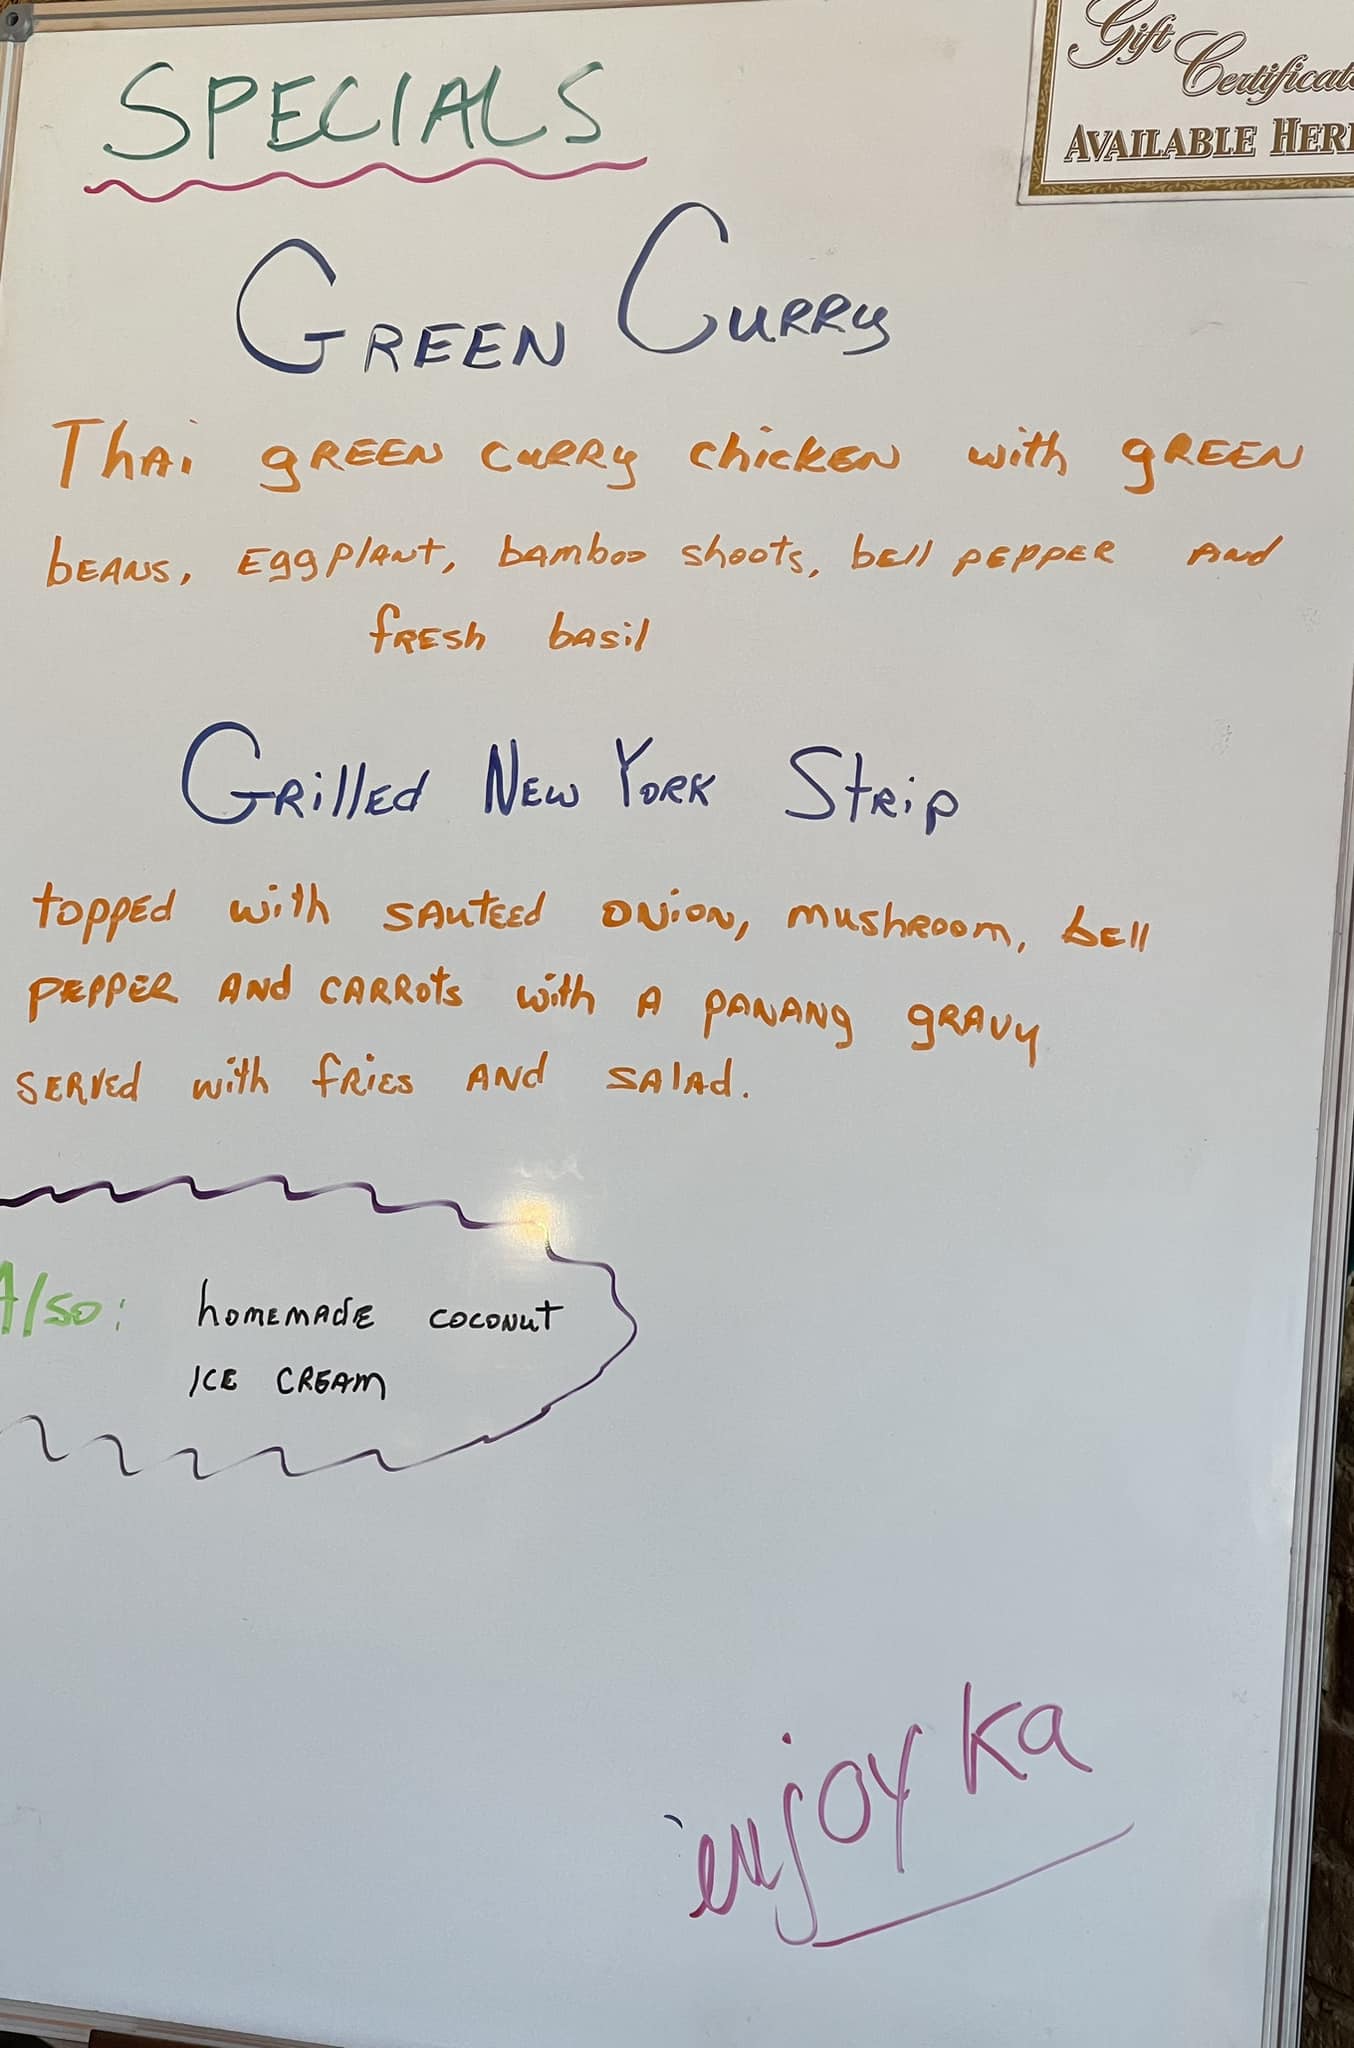 Gift
Certificate
AVAILABLE HERE
SPECIALS
GREEN CURRY
Thai gREEN cuRRy chickEN with gREEN
bEANS, EggplANt, bamboo shoots, bell PEPPER ANd
fRESh bASil
GRilled NEW YORK StRip
topped with SAUtEEd ONiON, mushROOm, bell
PEPPER ANd CARROtS with A PANANg gRAVy
SERVEd with fRiES ANd SAlAd.
Also: homEmAdE coconut
ICE CREAm
enjoy ka